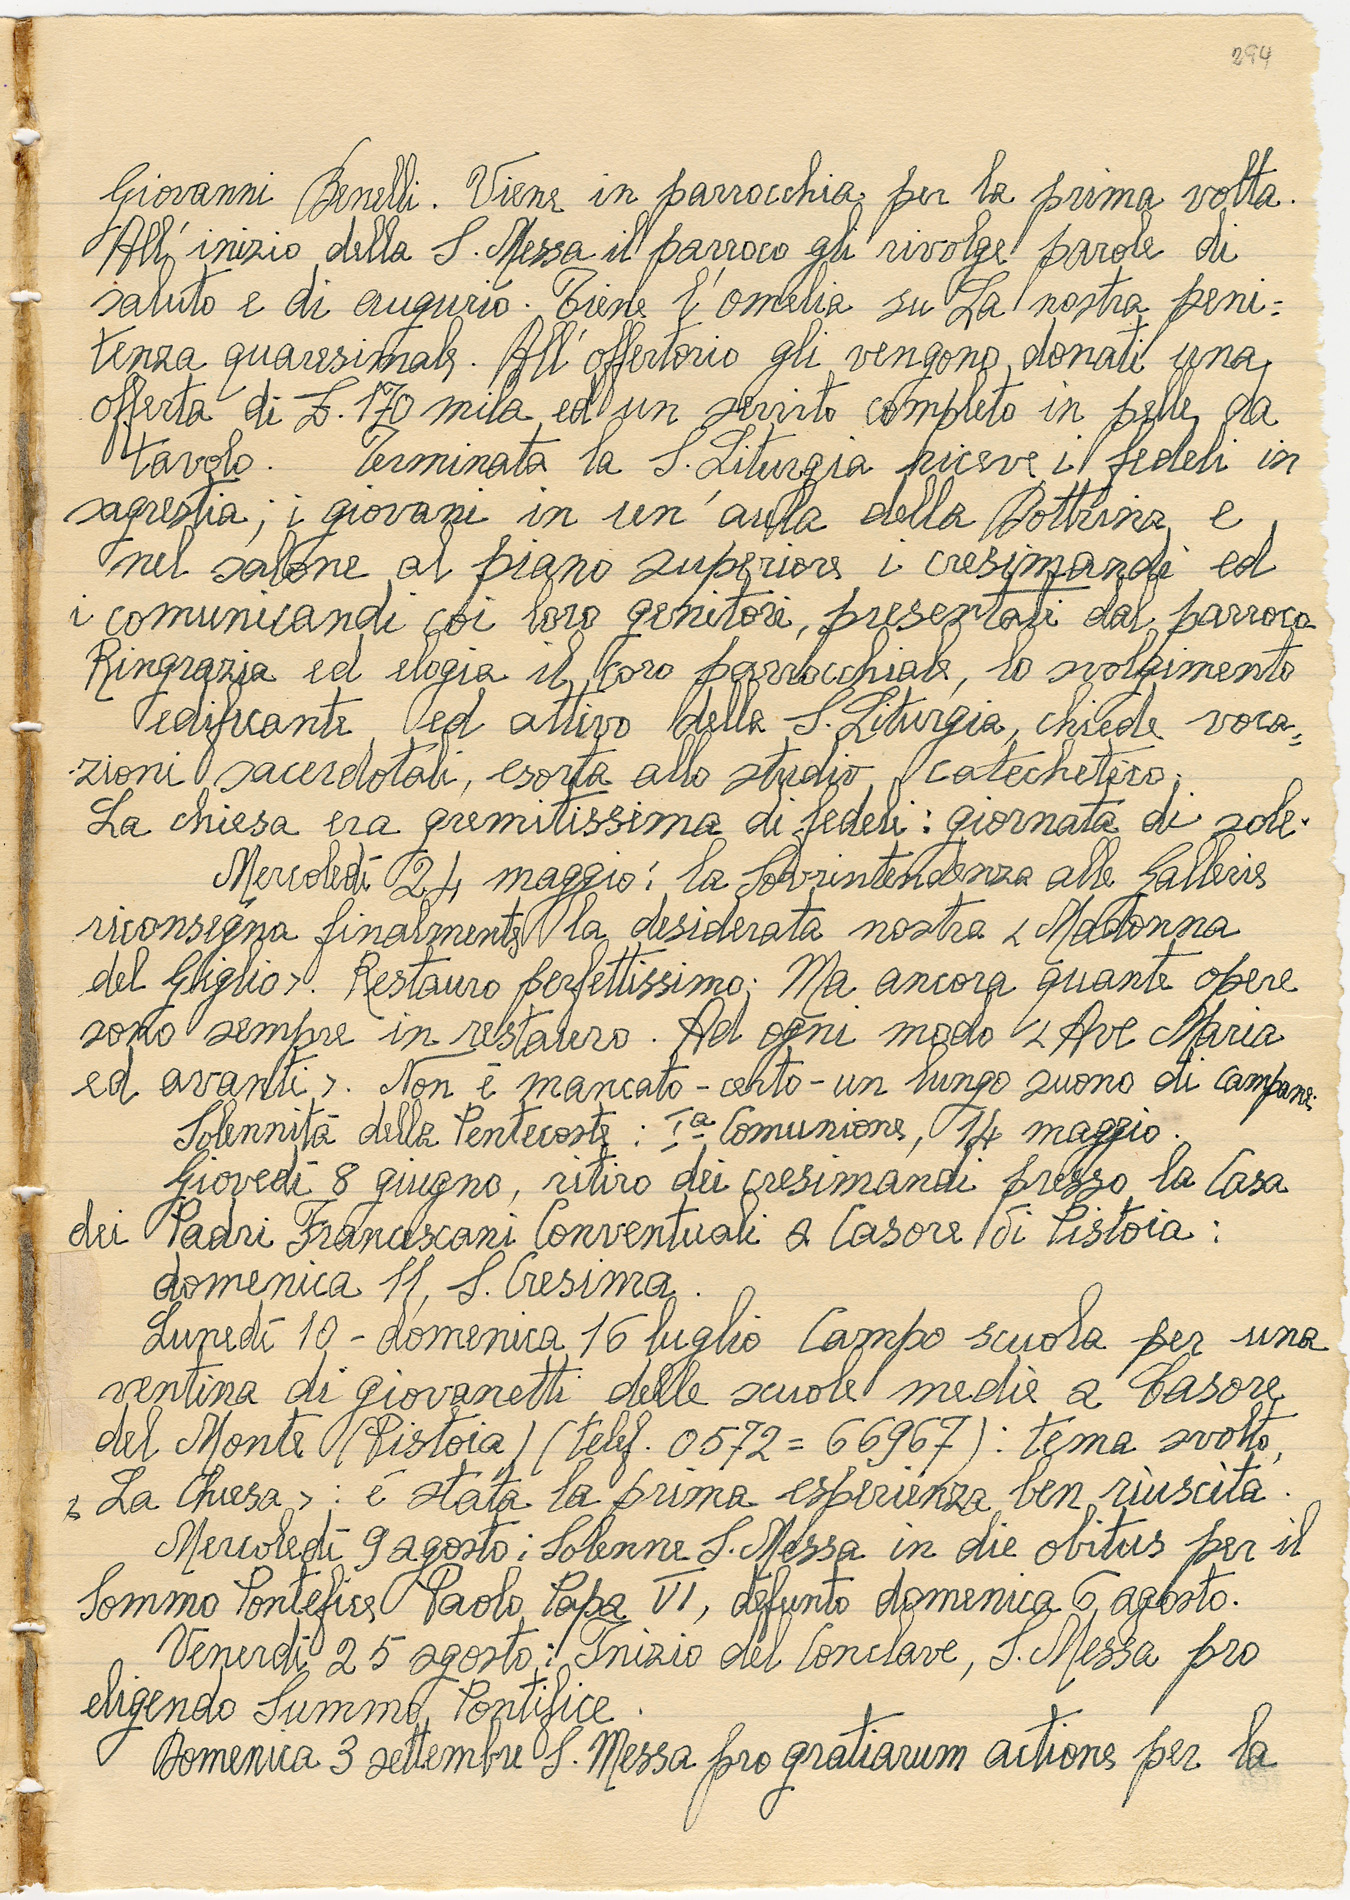 294
Giovanni Benelli. Viene in parrocchia per la prima volta.
All'inizio della S. Messa il parroco gli rivolge parole di
saluto e di augurio. Tiene l'omelia su La nostra peni=
tenza quaresimale. All'offertorio gli vengono donati una
offerta di £. 170 mila ed un servito completo in pelle da
tavolo. Terminata la S. Liturgia riceve i fedeli in
sagrestia; i giovani in un'aula della Dottrina e
nel salone al piano superiore i cresimandi ed
i comunicandi coi loro genitori, presentati dal parroco
Ringrazia ed elogia il Coro parrocchiale, lo svolgimento
edificante ed attivo della S. Liturgia, chiede voca=
zioni sacerdotali, esorta allo studio catechetico.
La chiesa era gremitissima di fedeli: giornata di sole.
Mercoledì 24 maggio: la Sovrintendenza alle Gallerie
riconsegna finalmente la desiderata nostra < Madonna
del Giglio >. Restauro perfettissimo. Ma ancora quante opere
sono sempre in restauro. Ad ogni modo < Ave Maria
ed avanti >. Non è mancato - certo - un lungo suono di campane.
Solennità della Pentecoste: Iª Comunione, 14 maggio.
Giovedì 8 giugno, ritiro dei cresimandi presso la Casa
dei Padri Francescani Conventuali a Casore di Pistoia:
domenica 11, S. Cresima.
Lunedì 10 - domenica 16 luglio Campo scuola per una
ventina di giovanetti delle scuole medie a Casore
del Monte (Pistoia) (telef. 0572 = 66967): tema svolto,
< La Chiesa >: è stata la prima esperienza ben riuscita.
Mercoledì 9 agosto: Solenne S. Messa in die obitus per il
Sommo Pontefice Paolo Papa VI, defunto domenica 6 agosto.
Venerdì 25 agosto: Inizio del Conclave, S. Messa pro
eligendo Summo Pontifice.
Domenica 3 settembre S. Messa pro gratiarum actione per la